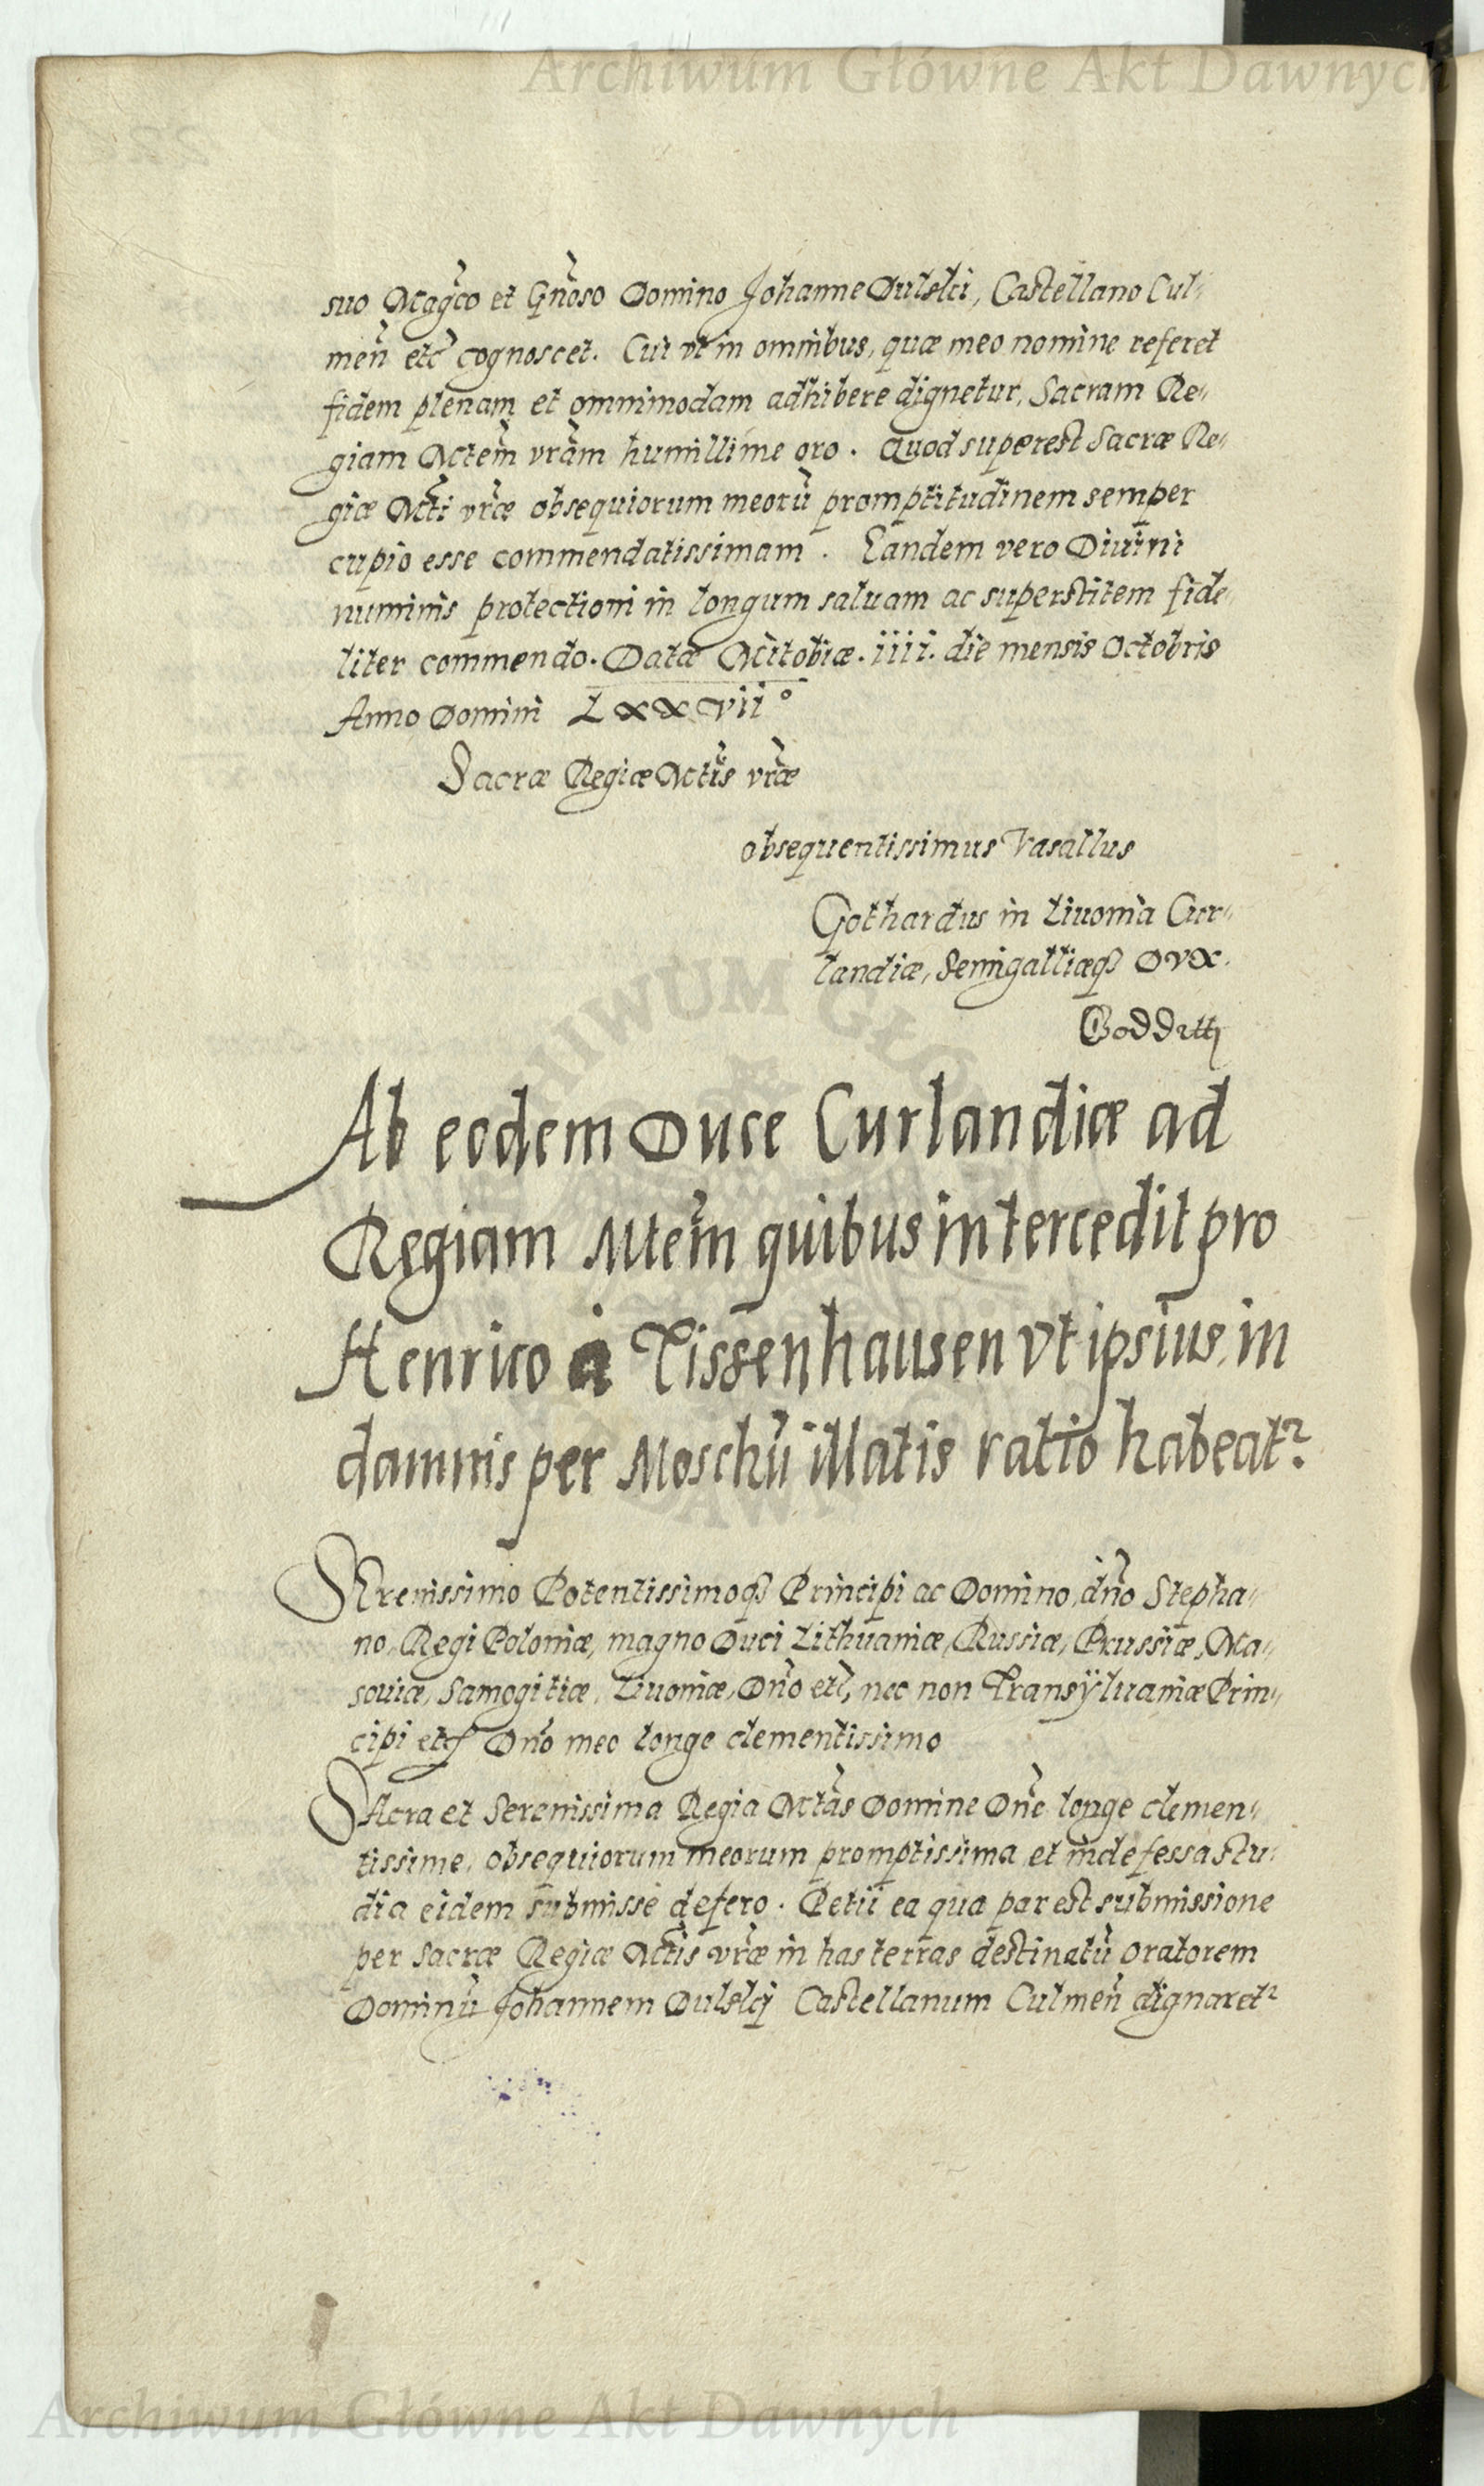 Archiwum Główne Akt Dawnych
suo Magc̃o et Gñoso Domino Johanne Dulski, Castellano Cul-
meñ etc̃ cognoscet. Cui vt in omnibus, quæ meo nomine referet
fidem plenam et omnimodam adhibere dignetur, Sacram Re-
giam Mtem̃ vrãm humillime oro. Quod superest Sacræ Re-
giæ Mti̴ vræ̃ obsequiorum meorũ promptitudinem semper
cupio esse commendatissimam. Eandem vero Diuini
numinis protectioni in longum saluam ac superstitem fide-
liter commendo. Datæ Mitobiæ. iiii. die mensis Octobris
Anno Domini Lxxvii°
Sacræ Regiæ Mtis̃ vræ̃
obsequentissimus Vasallus
Gothardus in Liuonia Cur-
landiæ, Semigalliæq3 Dvx.
Ab eodem Duce Curlandiæ ad
Regiam Mtem̃ quibus intercedit pro
Henrico à Tissenhausen vt ipsius, in
damnis per Moschũ illatis ratio habeat2
SErenissimo Potentissimoq3 Principi ac Domino, dño Stepha-
no, Regi Poloniæ, magno Duci Lithuaniæ, Russiæ, Prussiæ, Ma-
souiæ, Samogitiæ, Liuoniæ, Dño etc, nec non Transÿluaniæ Prin-
cipi etc Dño meo longe clementissimo
SAcra et Serenissima Regia Mtãs Domine Dñe longe clemen-
tissime, obsequiorum meorum promptissima et indefessa stu-
dia eidem submisse defero. Petii ea qua par est submissione
per Sacræ Regiæ Mtis̃ vræ̃ in has terras destinatũ oratorem
Dominũ Johannem Dulskj Castellanum Culmeñ dignaret2
Archiwum Główne Akt Dawnych